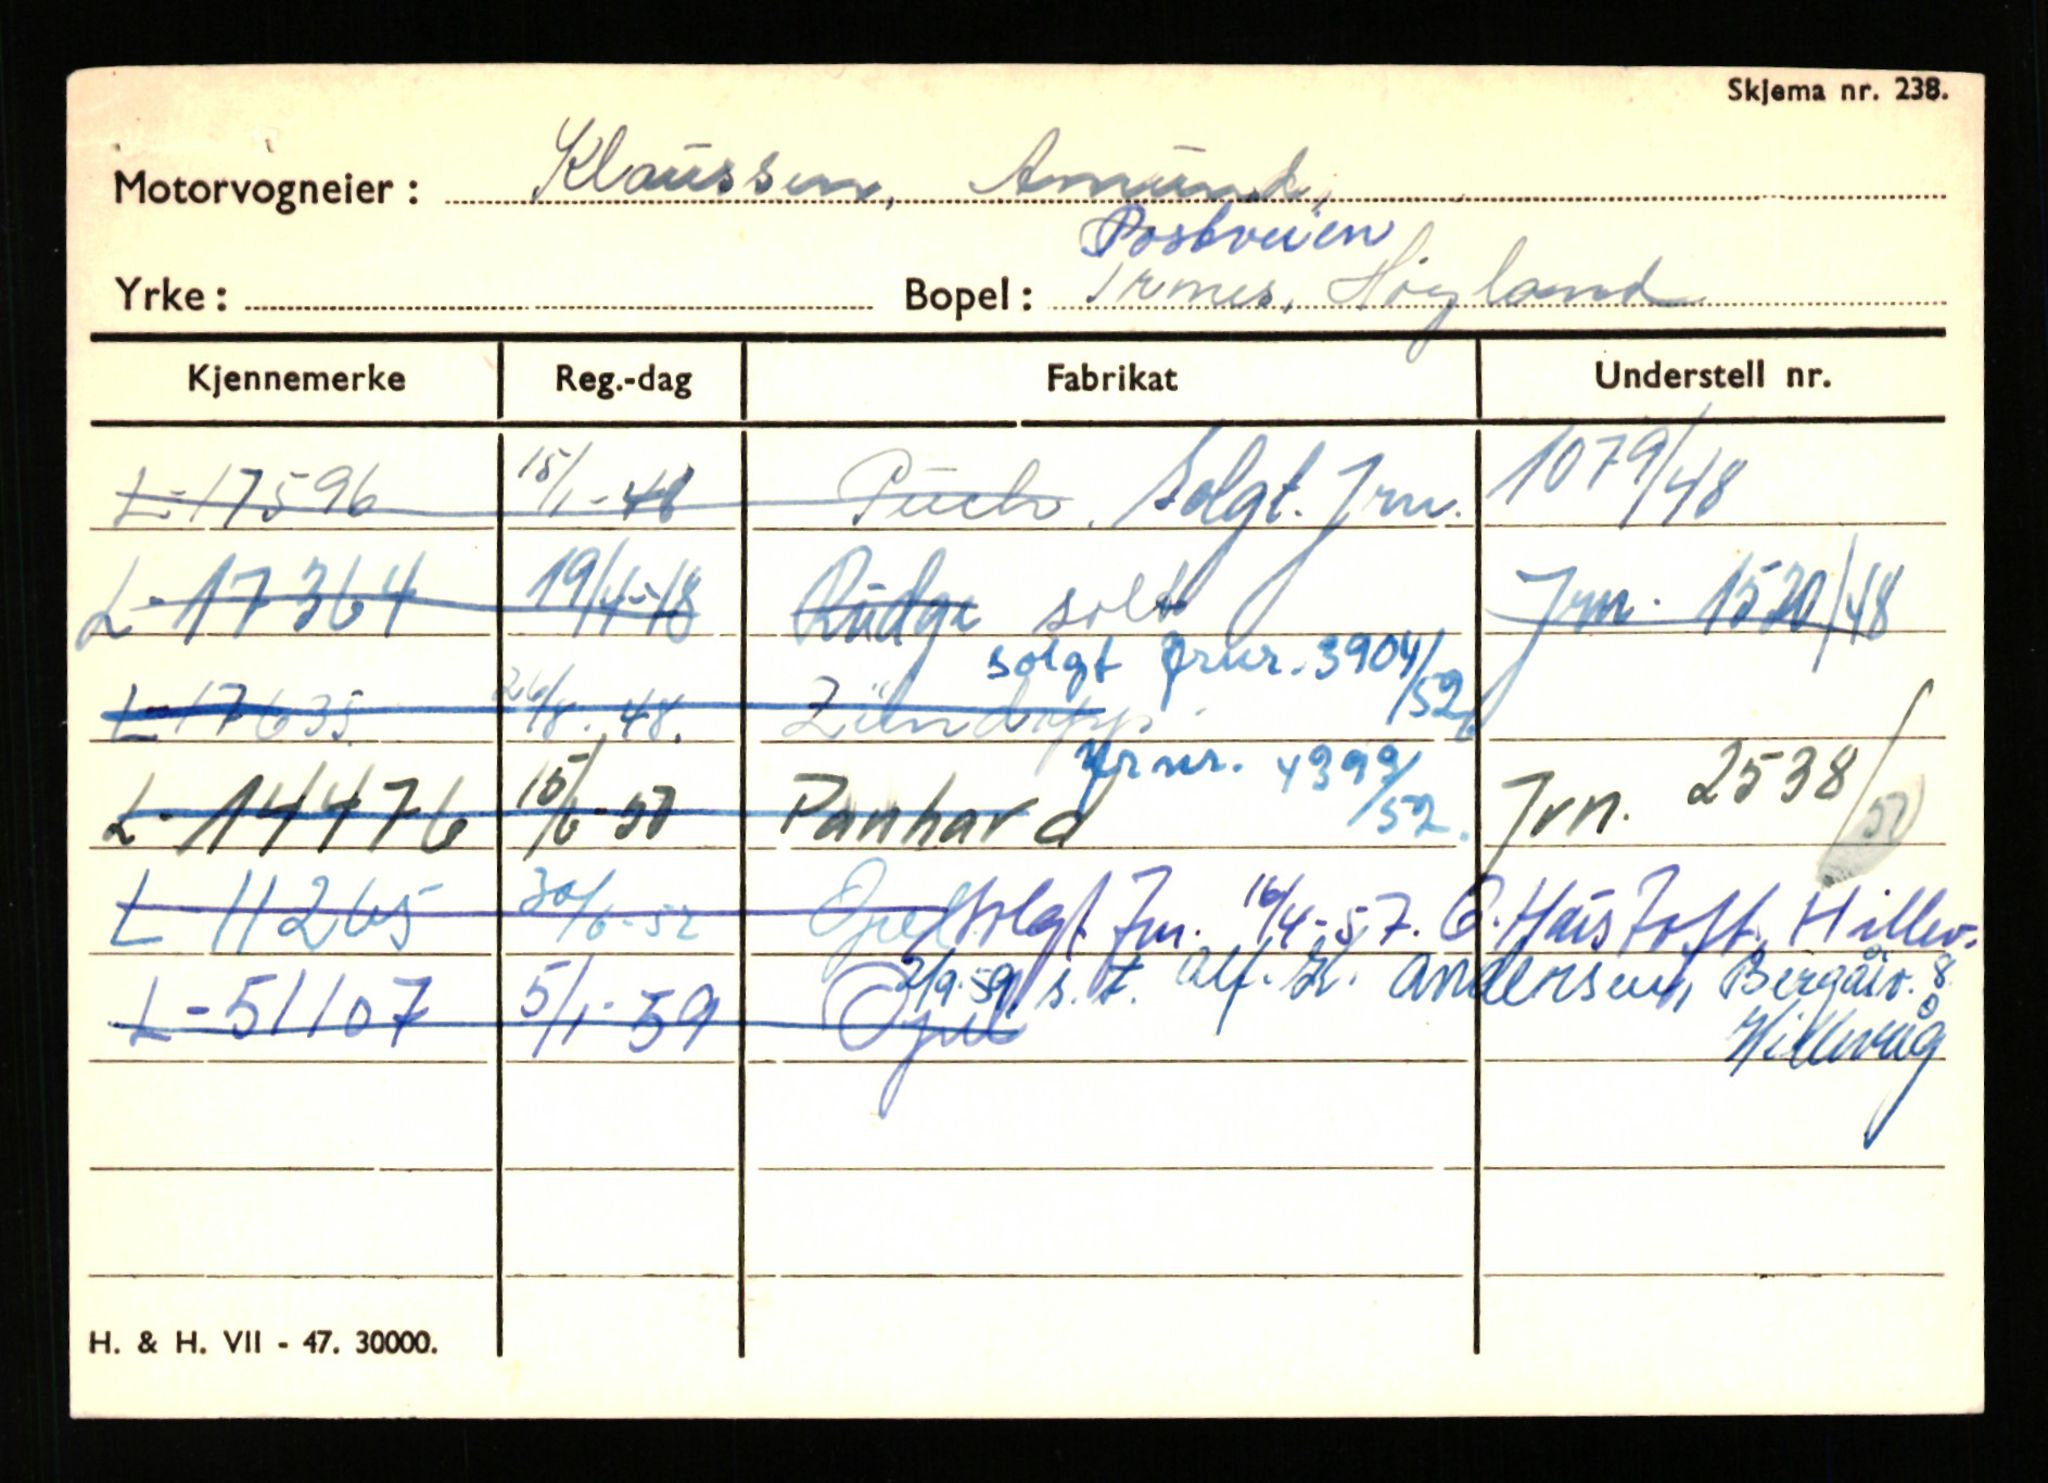 Skjema nr. 238.
Motorvogneier: Klaussen, Amund,
Postveien
Yrke: Bopel: Høyland
Kjennemerke Reg.-dag Fabrikat Understell nr.
L-17596 15/1-48 Puch. Solgt. Jrn. 1079/48
L-17364 19/4-48 Rudge solt Jrn. 1530/48
solgt Jrnr. 3904/52
L-17635 26/8-48. Zündapp.
Jrnr. 4399/52.
L-14476 15/6-50 Panhard Jrn. 2538/50
L-11265 30/6-52 Opel solgt Jrn. 16/4-57. Hillev.
L-51107 5/1-59 Opel 2/9-59, s.t. Alf. Andersen, 8
Hillevåg
H. & H. VII - 47. 30000.